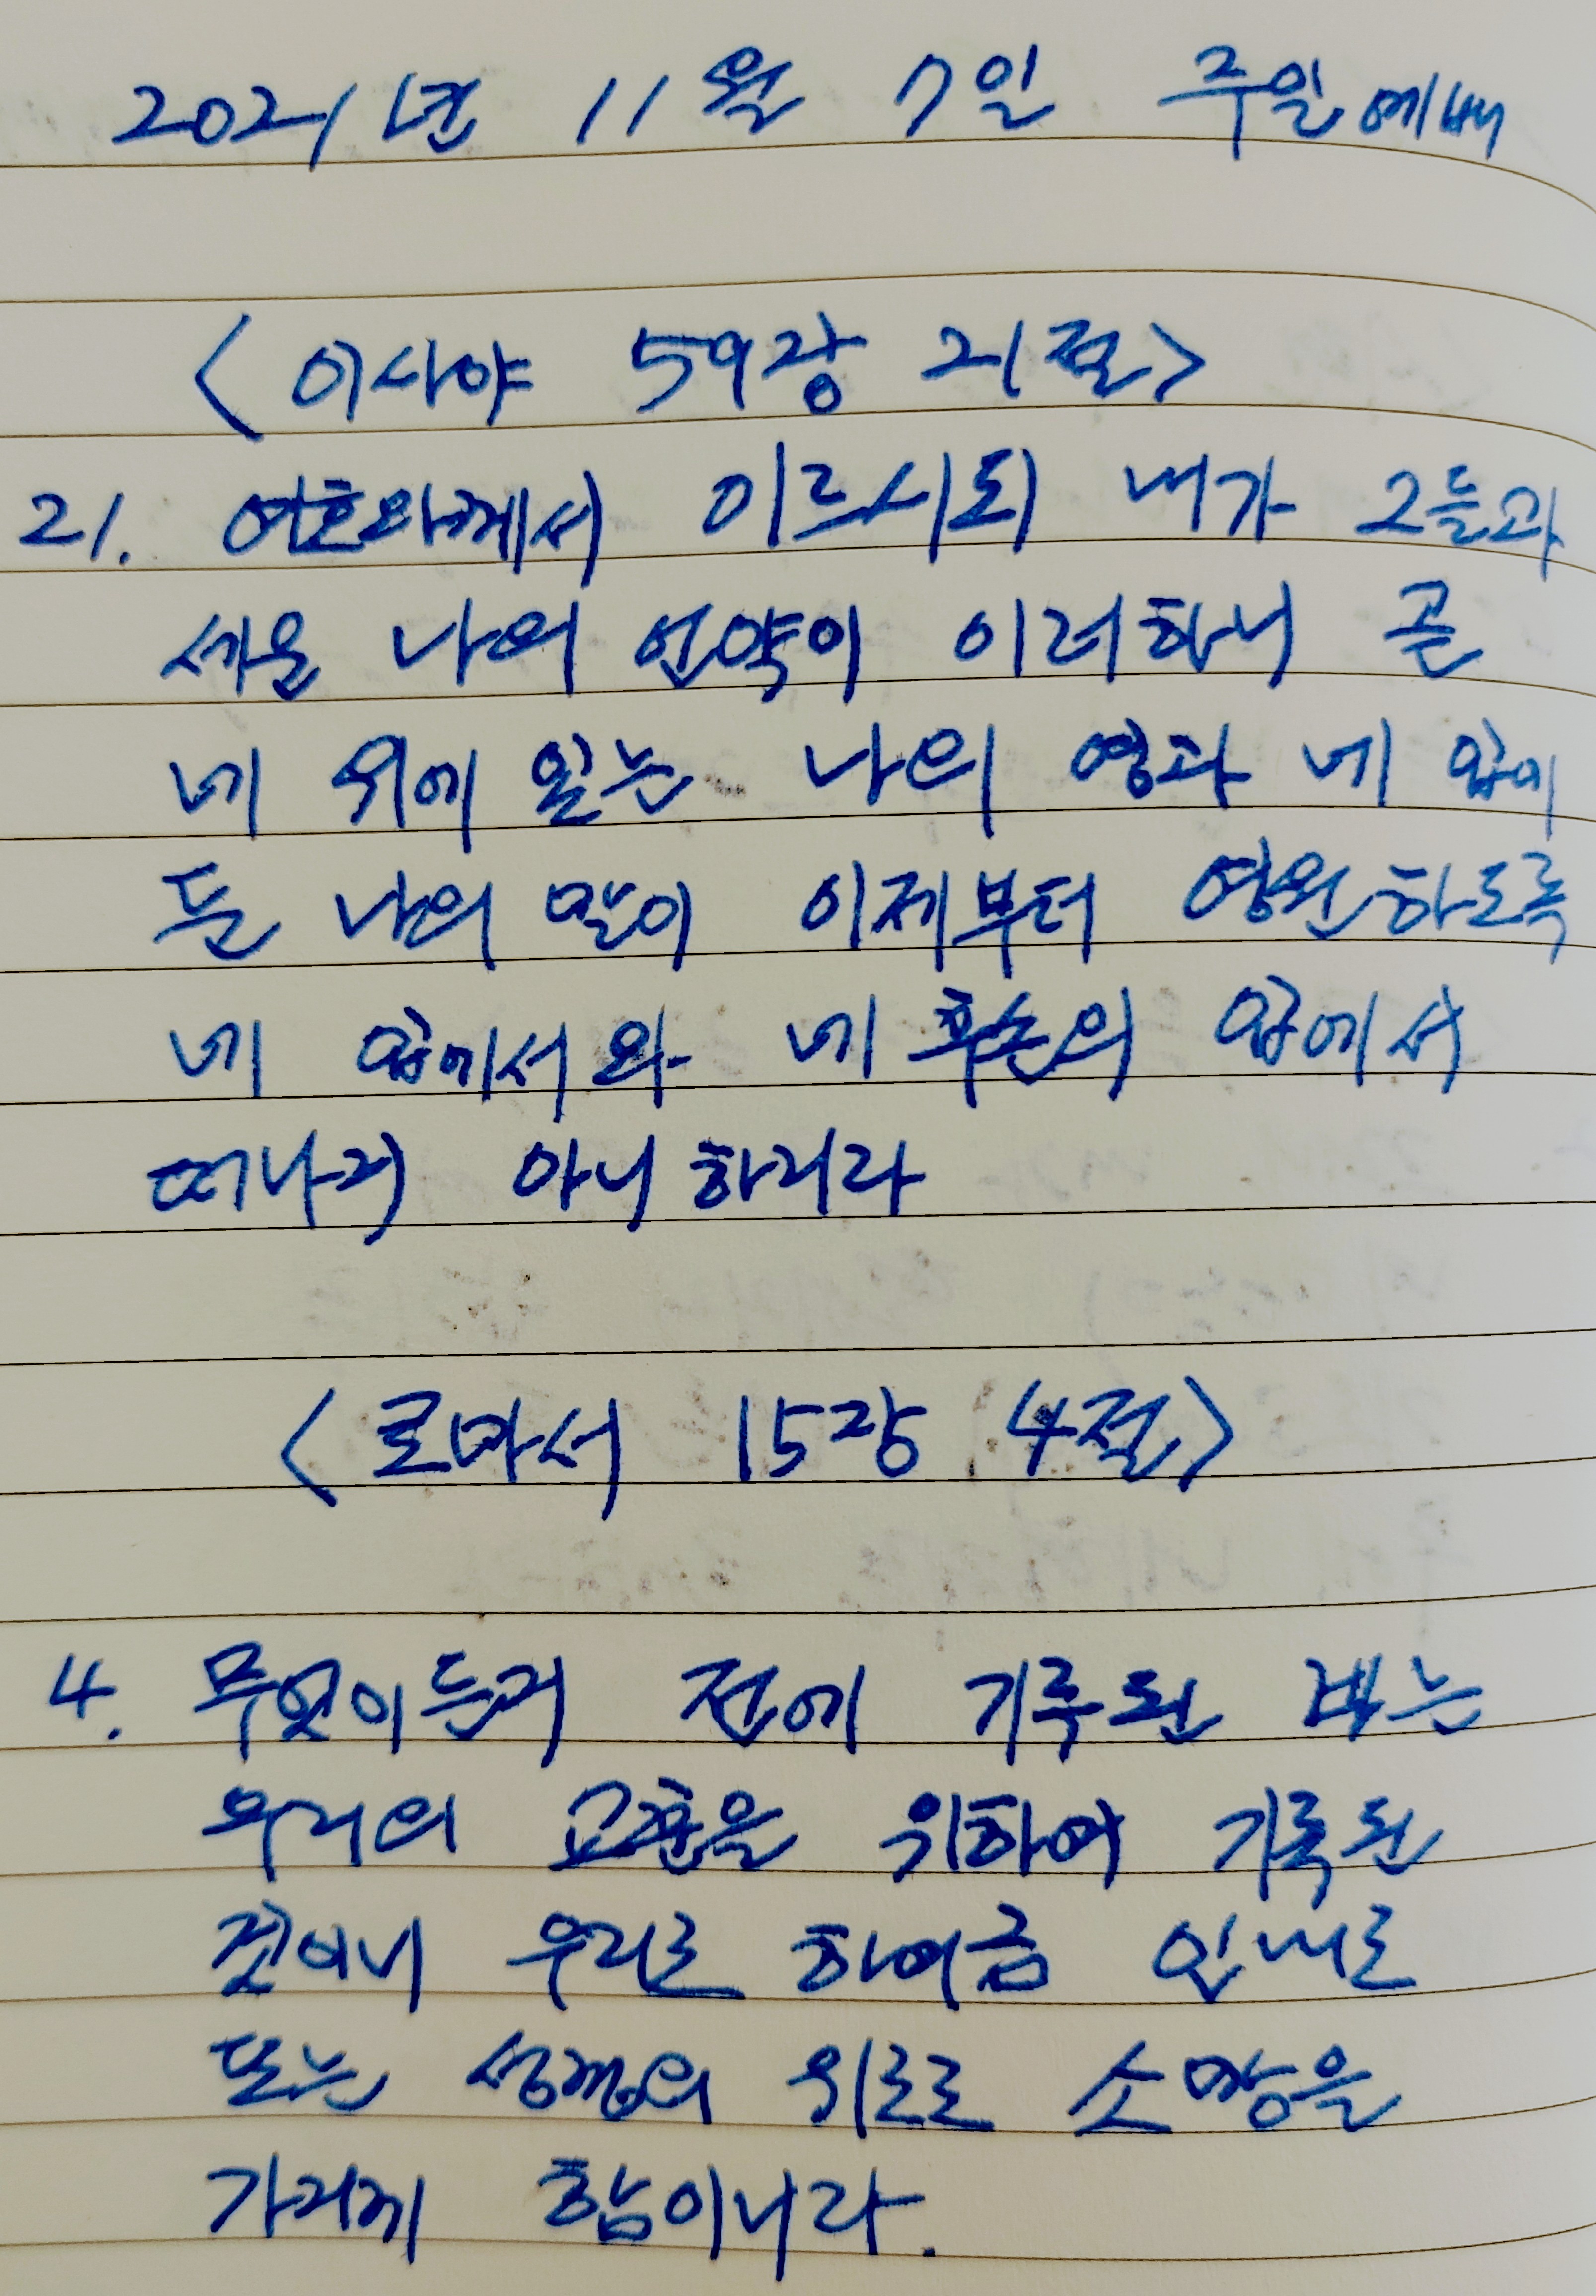 2021년 11월 7일 주일예배
<이사야 59장 21절>
21. 여호와께서 이르시되 내가 그들과
세운 나의 언약이 이러하니 곧
네 위에 있는 나의 영과 네 입에
둔 나의 말이 이제부터 영원하도록
네 입에서와 네 후손의 입에서
떠나지 아니하리라
<로마서 15장 4절>
4. 무엇이든지 전에 기록된 바는
우리의 교훈을 위하여 기록된
것이니 우리로 하여금 인내로
또는 성경의 위로로 소망을
가지게 함이니라.